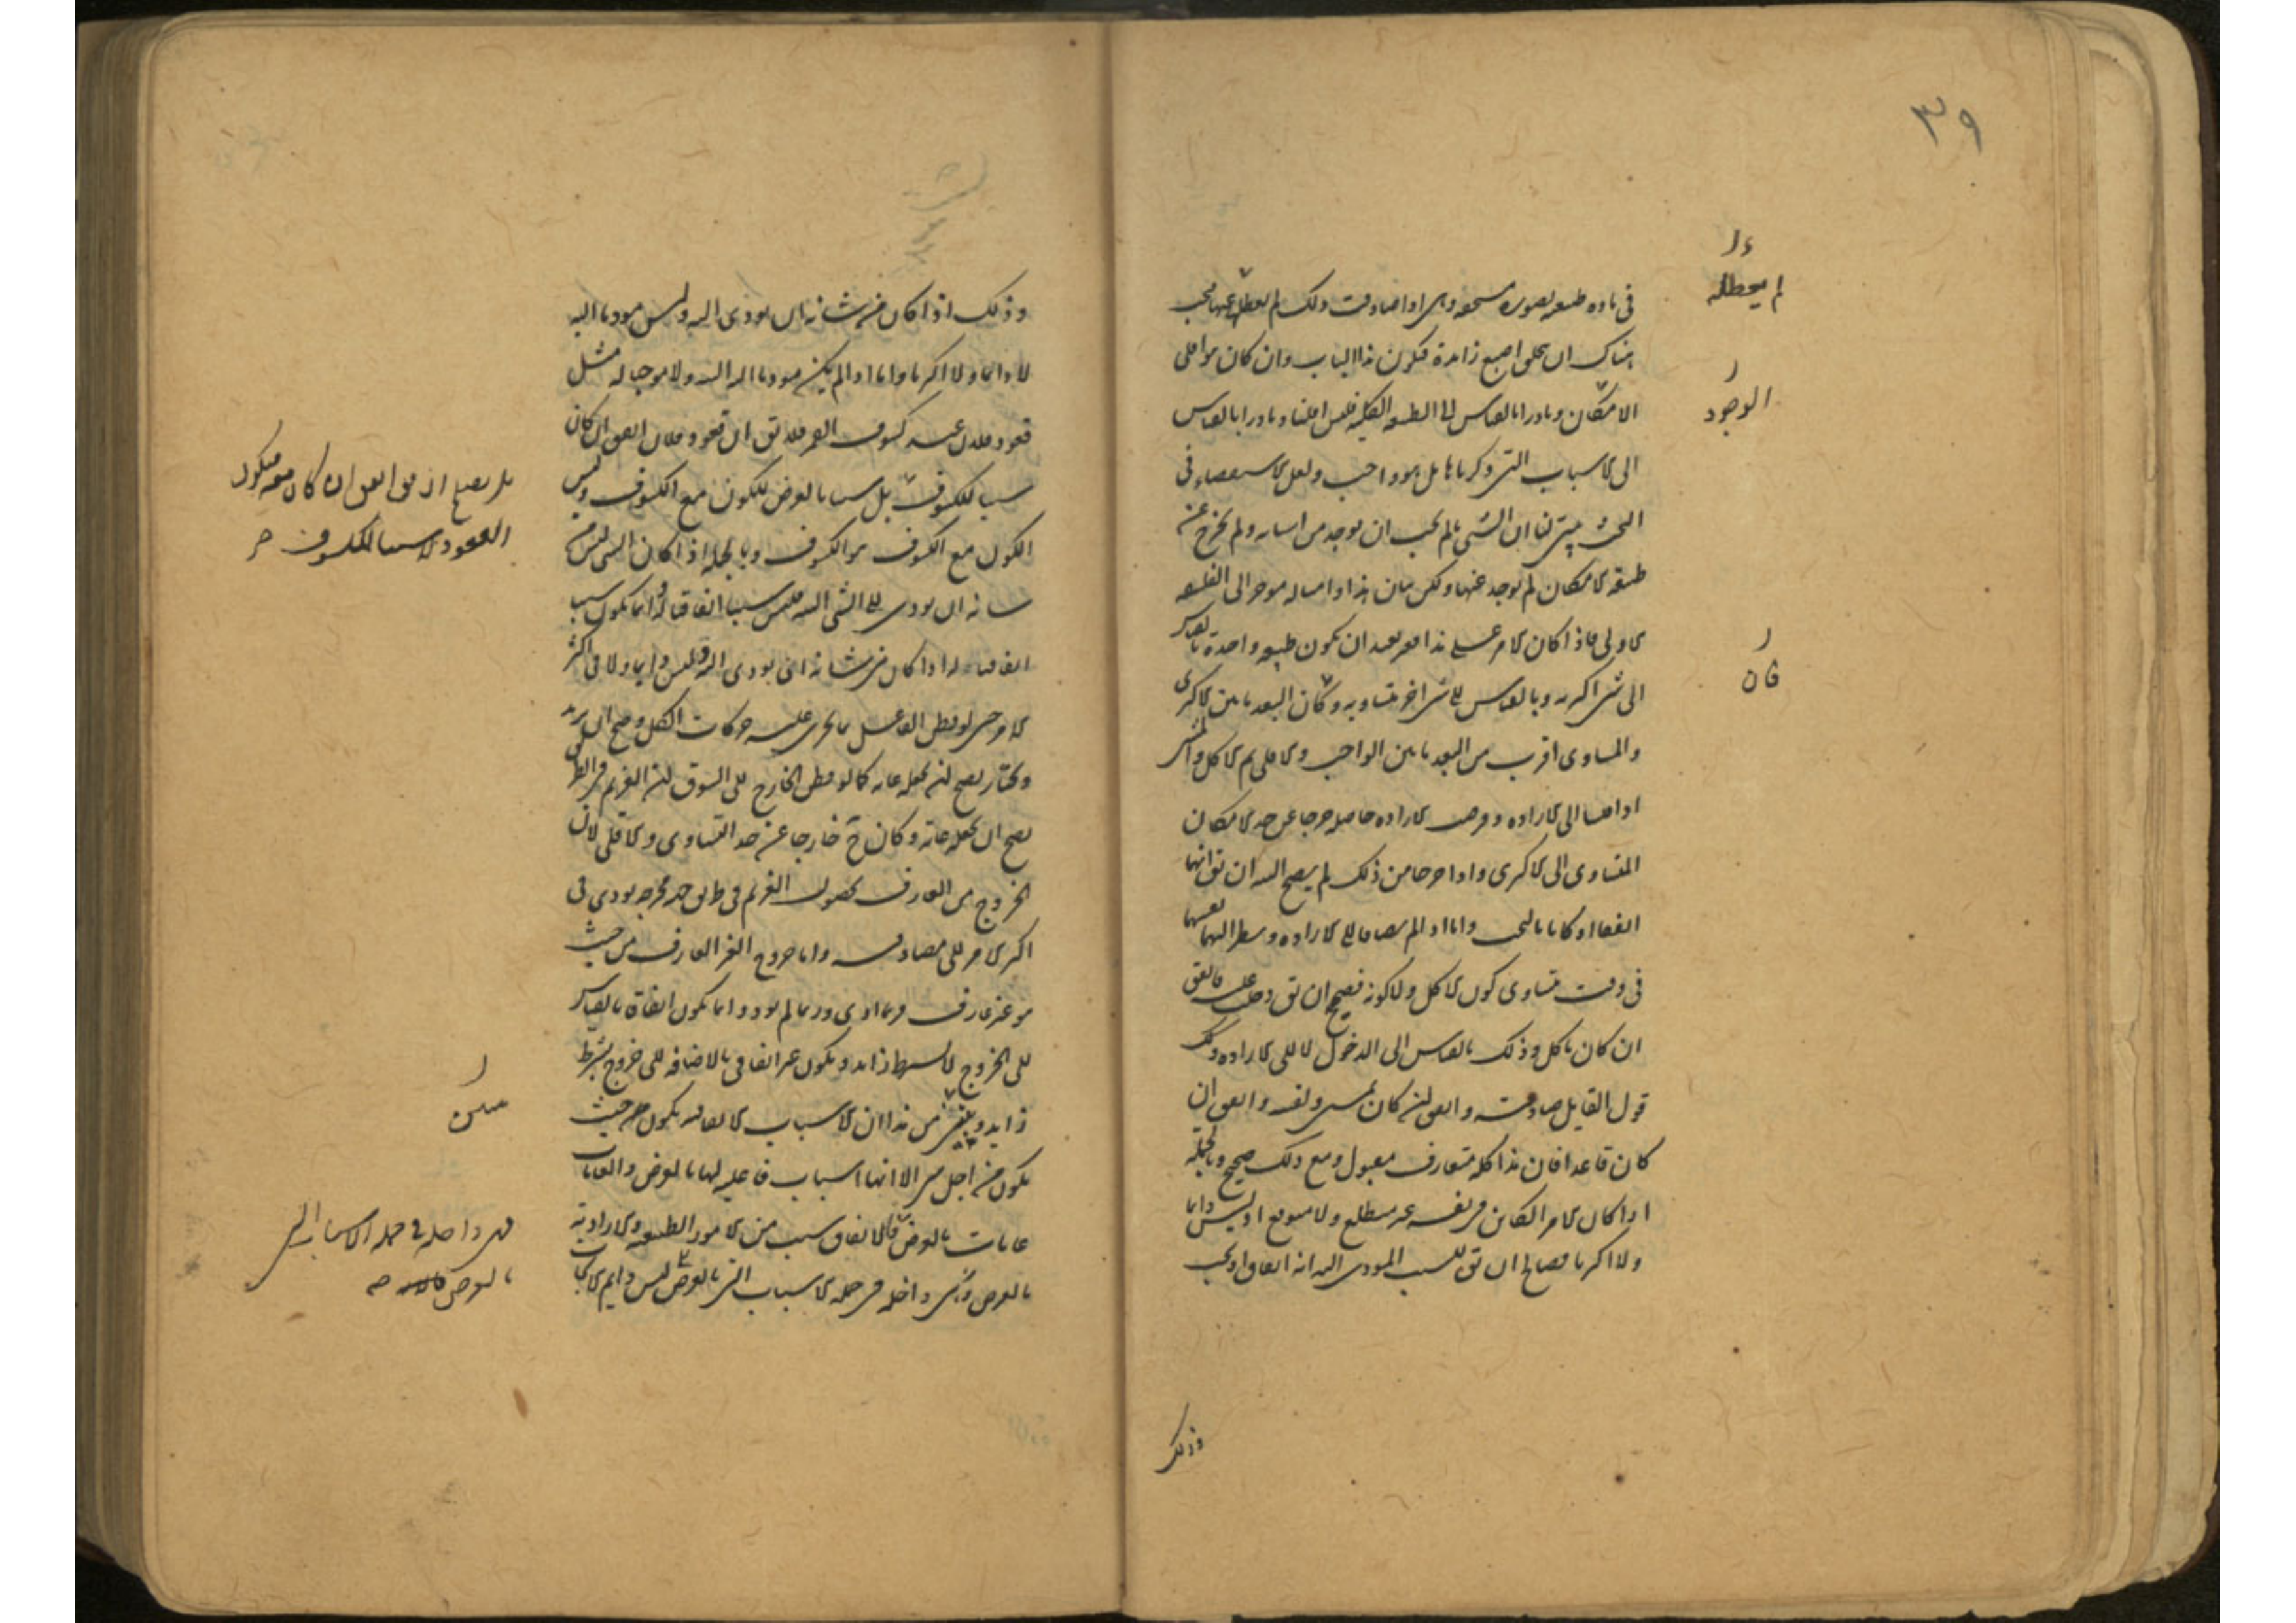 ٣٩
في مادة طبيعية لصورة مستحقة وهي اذا صادفت ذلك لم يعطل عنها فيجب
هناك ان يتخلق اصبع زايدة فيكون هذا الباب وان كان من اقلي
الامكان ونادرا بالقياس الى الطبيعة الكلية فليس اقليا ونادرا بالقياس
الى الاسباب التي ذكرناها بل هو واجب ولعل الاستقصاء في
البحث يبين لنا ان الشي ما لم يجب ان يوجد من اسبابه ولم يخرج عن
طبيعة الامكان لم يوجد عنها ولكن بيان هذا وامثاله موخر الى الفلسفة
الاولى فاذا كان الامر على هذا فغير بعيد ان يكون طبيعة واحدة بالقياس
الى شي اكثرية وبالقياس الى شي اخر متساوية وكان البعد ما بين الاكثري
والمساوي اقرب من البعد ما بين الواجب والاقلي ثم الاكل والمشي
اذا قيسا الى الارادة وفرضت الارادة حاصلة خرجا عن حد الامكان
المتساوي الى الاكثري واذا خرجا من ذلك لم يصح البتة ان يق انهما
اتفقا او كانا بالبخت واما اذا لم يضافا الى الارادة ونظر اليهما نفسهما
في وقت يتساوى كون الاكل ولاكونه فصحيح ان يق دخلت عليه فاتفق
ان كان ياكل وذلك بالقياس الى الدخول لا الى الارادة وكذلك
قول القايل صادفته واتفق ان كان يمشي ولقيته واتفق ان
كان قاعدا فان هذا كله متعارف مقبول ومع ذلك صحيح وبالجملة
اذا كان الامر الكاين في نفسه غير متطلع ولا متوقع اذ ليس دايما
ولا اكثريا فصالح ان يق للسبب المودي اليه انه اتفاق او بخت
لم يعطله
الوجود
فان
وذلك
وذلك اذا كان من شانه ان يودي اليه وليس موديا اليه
لا دايما ولا اكثريا واما اذا لم يكن موديا اليه البتة ولا موجبا له مثل
قعود فلان عند كسوف القمر فلا يق ان قعود فلان اتفق ان كان
سببا للكسوف بل سببا بالعرض للكون مع الكسوف وليس
الكون مع الكسوف هو الكسوف وبالجملة اذا كان الشي ليس من
شانه ان يودي الى الشي البتة فليس سببا اتفاقيا له وانما يكون سبب
اتفاقيا له اذا كان من شانه ان يودي اليه وليس دايما ولا في اكثر
الامر حتى لو فطن الفاعل بما تجري عليه حركات الكل وصح ان يريد
ويختار لصح ان يجعله غاية كما لو فطن الخارج الى السوق ان الغريم في الطريق
لصح ان يجعله غاية وكان ح خارجا عن حد التساوي والاقلي لان
خروج العارف بحصول الغريم في طريق جهة مخرجه يودي في
اكثر الامر الى مصادفته واما خروج الغير العارف من حيث
هو غير عارف فربما ادى وربما لم يود وانما يكون اتفاقا بالقياس
الى الخروج لا بشرط زايد ويكون غير اتفاقي بالاضافة الى خروج بشرط
زايد ويتبين من هذا ان الاسباب الاتفاقية يكون من حيث
يكون من اجل شي الا انها اسباب فاعلية لها بالعرض والغايات
غايات بالعرض فالاتفاق سبب من الامور الطبيعية والارادية
بالعرض وهي داخلة في جملة الاسباب التي بالعرض ليس دايم الايجاب
بل يصح ان يق اتفق ان كان معه فيكون
القعود لا سببا للكسوف صح
يبين
فهي داخلة في جملة الاسباب التي
بالعرض صح